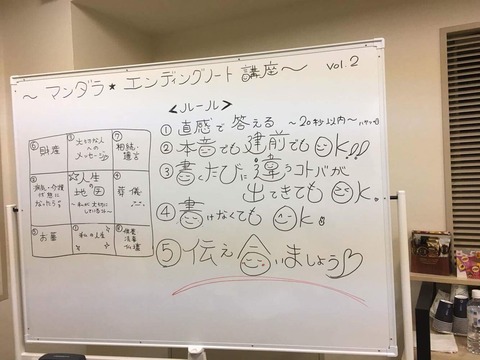 ～マンダラ★エンディングノート講座～ vol.2
<ルール>
① 直感で答える ～20秒以内～
② 本音でも建前でもOK!!!
③ 書くたびに違うコトバが
出てきてもOK。
④ 書けなくてもOK。
⑤ 伝え合いましょう♡
⑥ 財産
③ 大切な人
への
メッセージ
⑦ 相続・
遺言
② 病気・介護
状態に
なったら
☆人生
地図
④ 葬儀
⑤ お墓
① 私の人生
⑧
仏壇